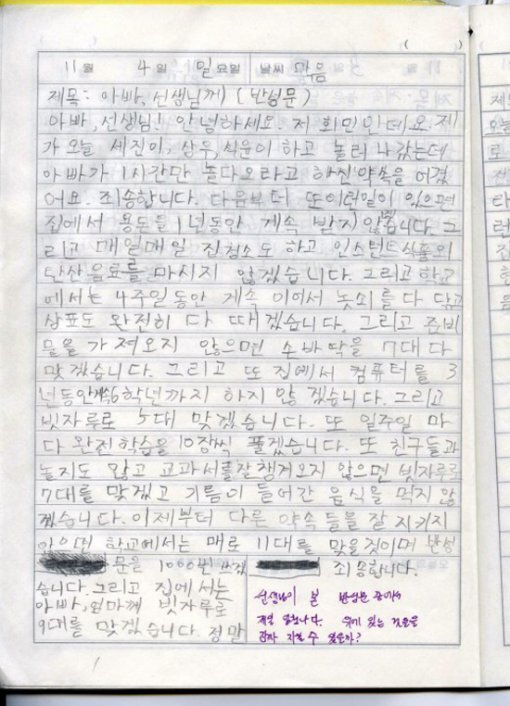 11월 4일 일요일 날씨 맑음
제목: 아빠, 선생님께 (반성문)
아빠, 선생님! 안녕하세요. 저 희민인데요. 제
가 오늘 세진이, 상우, 식운이 하고 놀러 나갔는데
아빠가 1시간만 놀다오라고 하신 약속을 어겼
어요. 죄송합니다. 다음부터 또 이런일이 있으면
집에서 용돈을 1년동안 계속 받지 않겠습니다. 그
리고 매일매일 집청소도 하고 인스턴트식품의
탄산음료를 마시지 않겠습니다. 그리고 학교
에서는 4주일동안 계속 이어서 놋쇠를 다 닦고
상표도 완전히 다 떼겠습니다. 그리고 준비
물을 가져오지 않으면 손바닥을 7대 다
맞겠습니다. 그리고 또 집에서 컴퓨터를 3
년동안 계속 6학년까지 하지 않겠습니다. 그리고
빗자루로 5대 맞겠습니다. 또 일주일 마
다 완전학습을 10장씩 풀겠습니다. 또 친구들과
놀지도 않고 교과서를 잘 챙겨오지 않으면 빗자루로
7대를 맞겠고 기름이 들어간 음식을 먹지 않
겠습니다. 이제부터 다른 약속들을 잘 지키지
않으면 학교에서는 매로 11대를 맞을것이며 반성
문을 1000번 쓰겠
습니다. 그리고 집에서는
아빠, 엄마께 빗자루로
9대를 맞겠습니다. 정말
죄송합니다.
선생님이 본 반성문 중에서
제일 입니다. 여기 있는 것들을
과자 지킬 수 있을까?